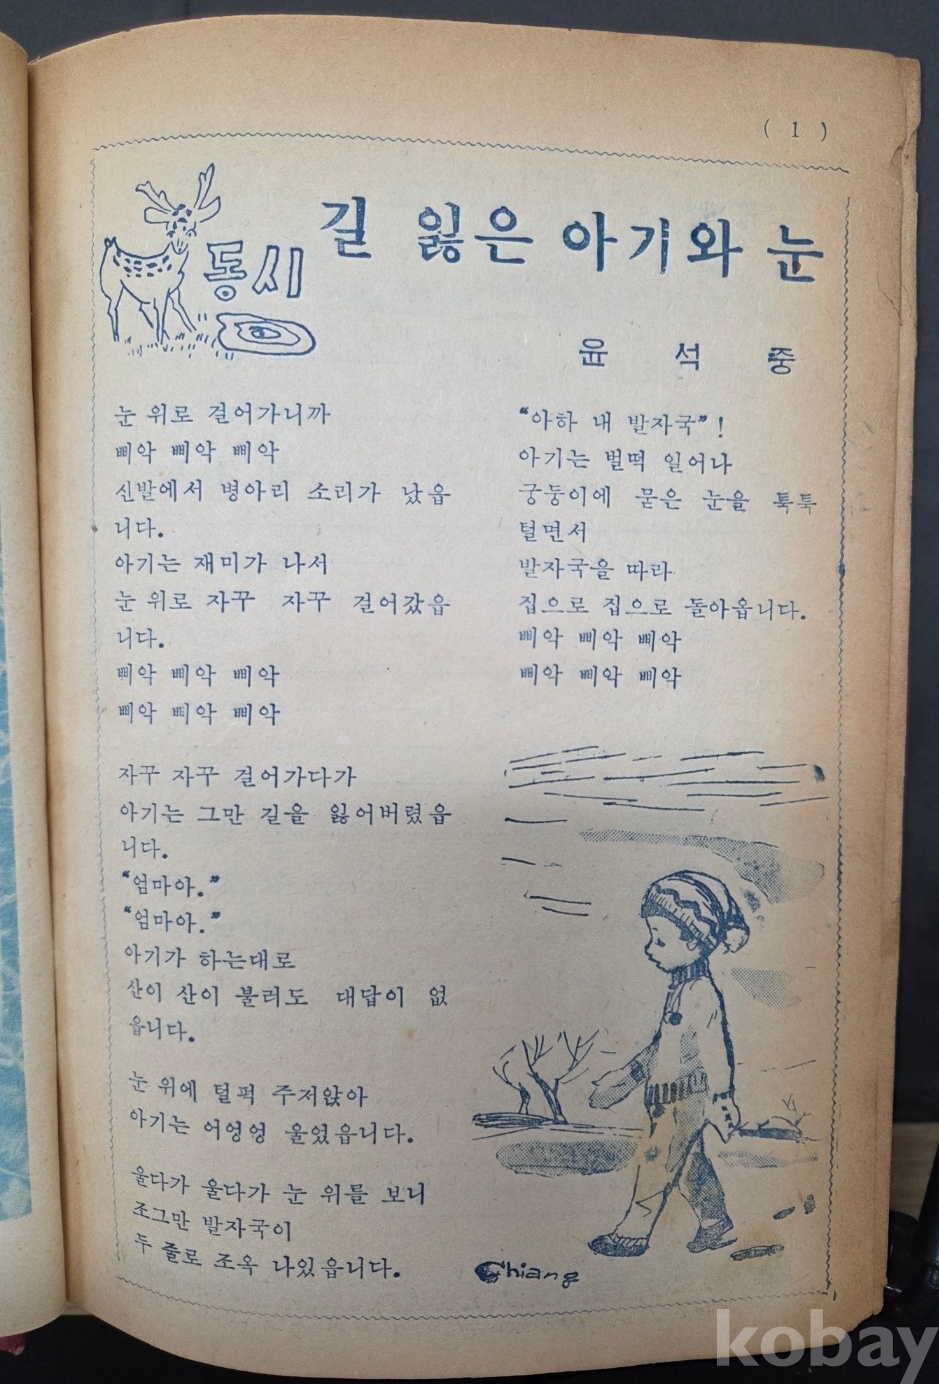 ( 1 )
동시
길 잃은 아기와 눈
윤 석 중
눈 위로 걸어가니까
삐악 삐악 삐악
신발에서 병아리 소리가 났읍
니다.
아기는 재미가 나서
눈 위로 자꾸 자꾸 걸어갔읍
니다.
삐악 삐악 삐악
삐악 삐악 삐악
자꾸 자꾸 걸어가다가
아기는 그만 길을 잃어버렸읍
니다.
“엄마아.”
“엄마아.”
아기가 하는대로
산이 산이 불러도 대답이 없
읍니다.
눈 위에 털퍽 주저앉아
아기는 어엉엉 울었읍니다.
울다가 울다가 눈 위를 보니
조그만 발자국이
두 줄로 조옥 나있읍니다.
“아하 내 발자국”!
아기는 벌떡 일어나
궁둥이에 묻은 눈을 툭툭
털면서
발자국을 따라
집으로 집으로 돌아옵니다.
삐악 삐악 삐악
삐악 삐악 삐악
Chiang
kobay